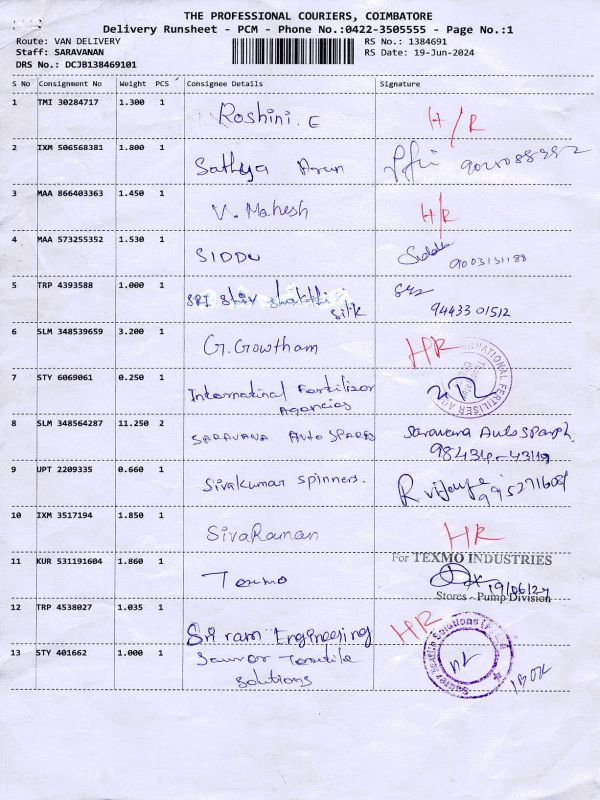 THE PROFESSIONAL COURIERS, COIMBATORE
Delivery Runsheet - PCM - Phone No.:0422-3505555 - Page No.:1
Route: VAN DELIVERY
RS No.: 1384691
Staff: SARAVANAN
RS Date: 19-Jun-2024
DRS No.: DCJB138469101
S No Consignment No Weight PCS Consignee Details Signature
1 TMI 30284717 1.300 1 Roshini. E H/R
2 IXM 506568381 1.800 1 Sathya Arun
3 MAA 866403363 1.450 1 V. Mahesh H/R
4 MAA 573255352 1.530 1 SIDDU 9003131188
5 TRP 4393588 1.000 1 SRI Shiv Shakthi
Silk 94433 01512
6 SLM 348539659 3.200 1 G. Gowtham HR
7 STY 6069061 0.250 1 International Fertilizor
Agencies
8 SLM 348564287 11.250 2 SARAVANA Auto SPARES Saravana Auto
98434-43119
9 UPT 2209335 0.660 1 Sivakumar Spinners. R
10 IXM 3517194 1.850 1 SivaRaman HR
For TEXMO INDUSTRIES
11 KUR 531191604 1.860 1 Texmo 19/06/24
Stores - Pump Division
12 TRP 4538027 1.035 1 Sri ram Engineering HR
13 STY 401662 1.000 1
Solutions